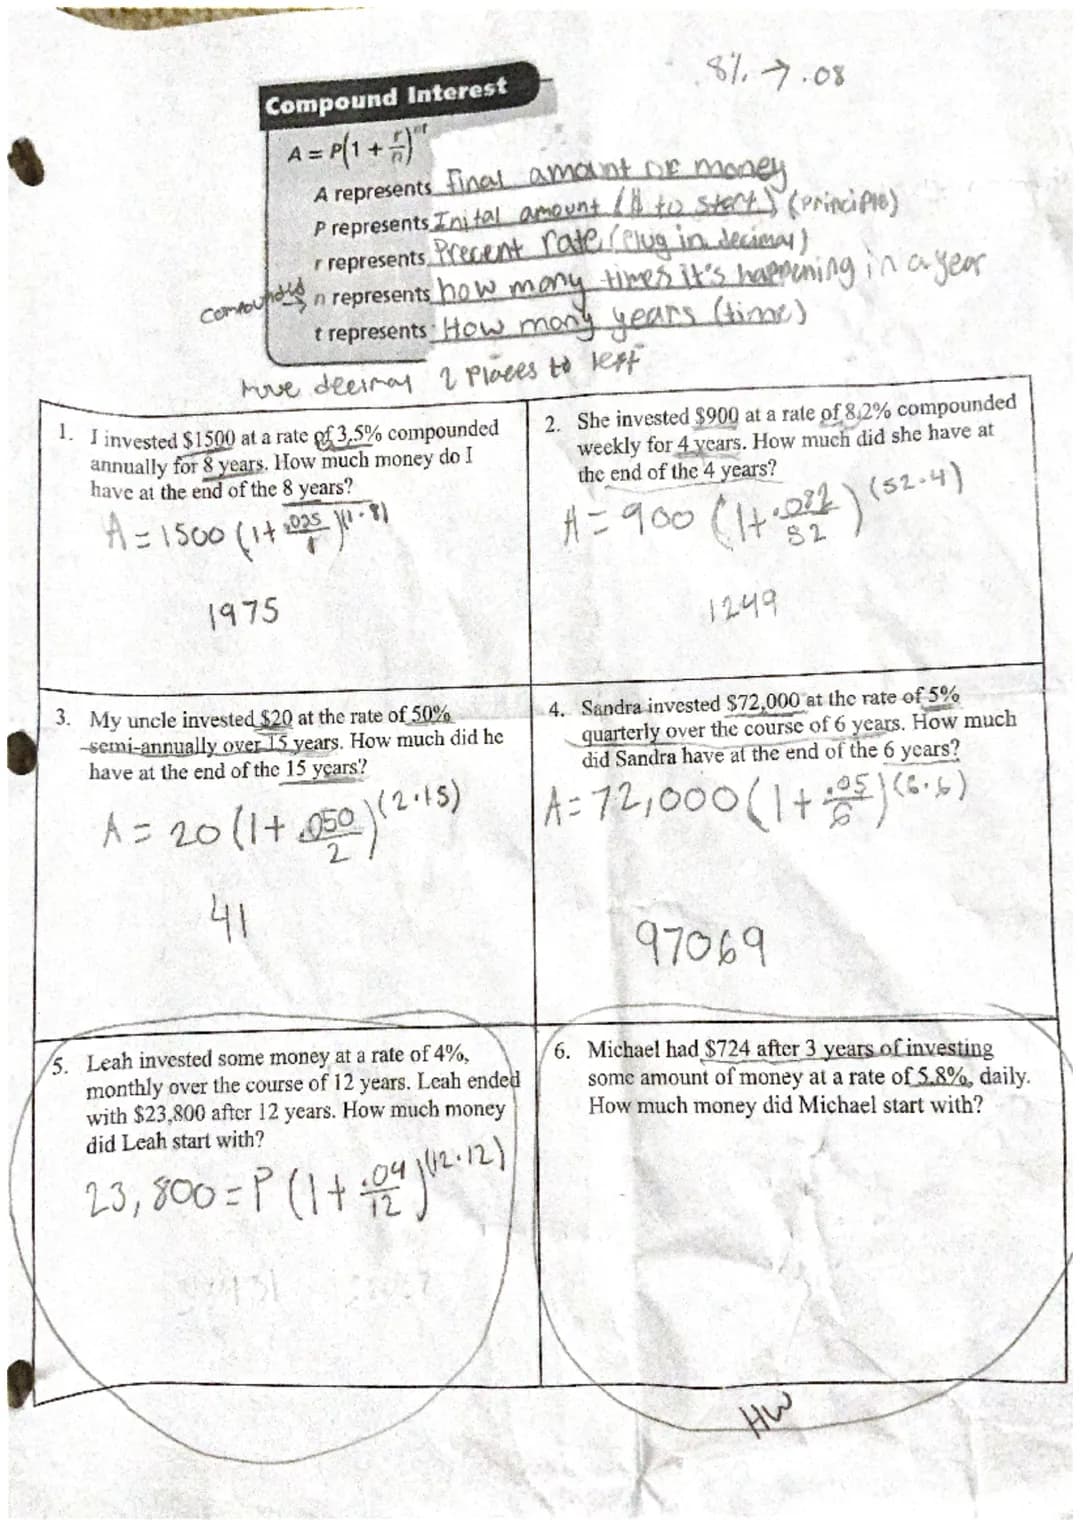 8% → .08
Compound Interest
A = P(1 + r/n)^nt
A represents Final amount OF money
P represents Inital amount ($ to start) (principle)
r represents Precent rate (Plug in decimal)
n represents how many times it's happening in a year
t represents How many years (time)
move decimal 2 Places to left
1. I invested $1500 at a rate of 3.5% compounded
annually for 8 years. How much money do I
have at the end of the 8 years?
A = 1500 (1+ .035/1)^(1·8)
1975
2. She invested $900 at a rate of 8.2% compounded
weekly for 4 years. How much did she have at
the end of the 4 years?
A = 900 (1+ .082/52)^(52·4)
1249
3. My uncle invested $20 at the rate of 50%
semi-annually over 15 years. How much did he
have at the end of the 15 years?
A = 20 (1+ .050/2)^(2·15)
41
4. Sandra invested $72,000 at the rate of 5%
quarterly over the course of 6 years. How much
did Sandra have at the end of the 6 years?
A = 72,000 (1+ .05/6)^(6·6)
97069
5. Leah invested some money at a rate of 4%,
monthly over the course of 12 years. Leah ended
with $23,800 after 12 years. How much money
did Leah start with?
23,800 = P (1+ .04/12)^(12·12)
6. Michael had $724 after 3 years of investing
some amount of money at a rate of 5.8%, daily.
How much money did Michael start with?
HW